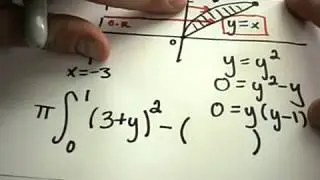 y=x
0
x=-3
y=y²
0=y²-y
0=y(y-1)
π∫₀¹(3+y)²-( )